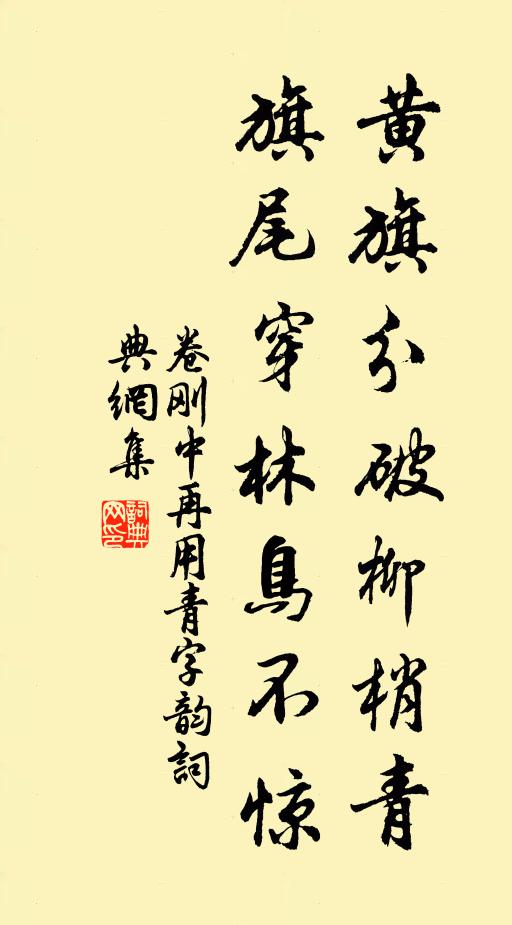 黄旗分破柳梢青
旗尾穿林鳥不惊
卷刚中再用青字韵詞
典網集
詞典网印